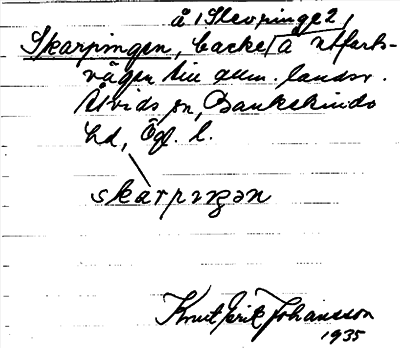 å Slevringe 2,
Skarpingen, backe å utfarts-
vägen till allm. landsv.
Åtvids sn, Bankekinds
hd, Ögl. l.
skarpıŋən
Knut Erik Johansson
1935